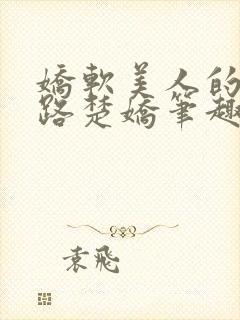 嬌軟美人的
路楚嬌筆趣
袁飛